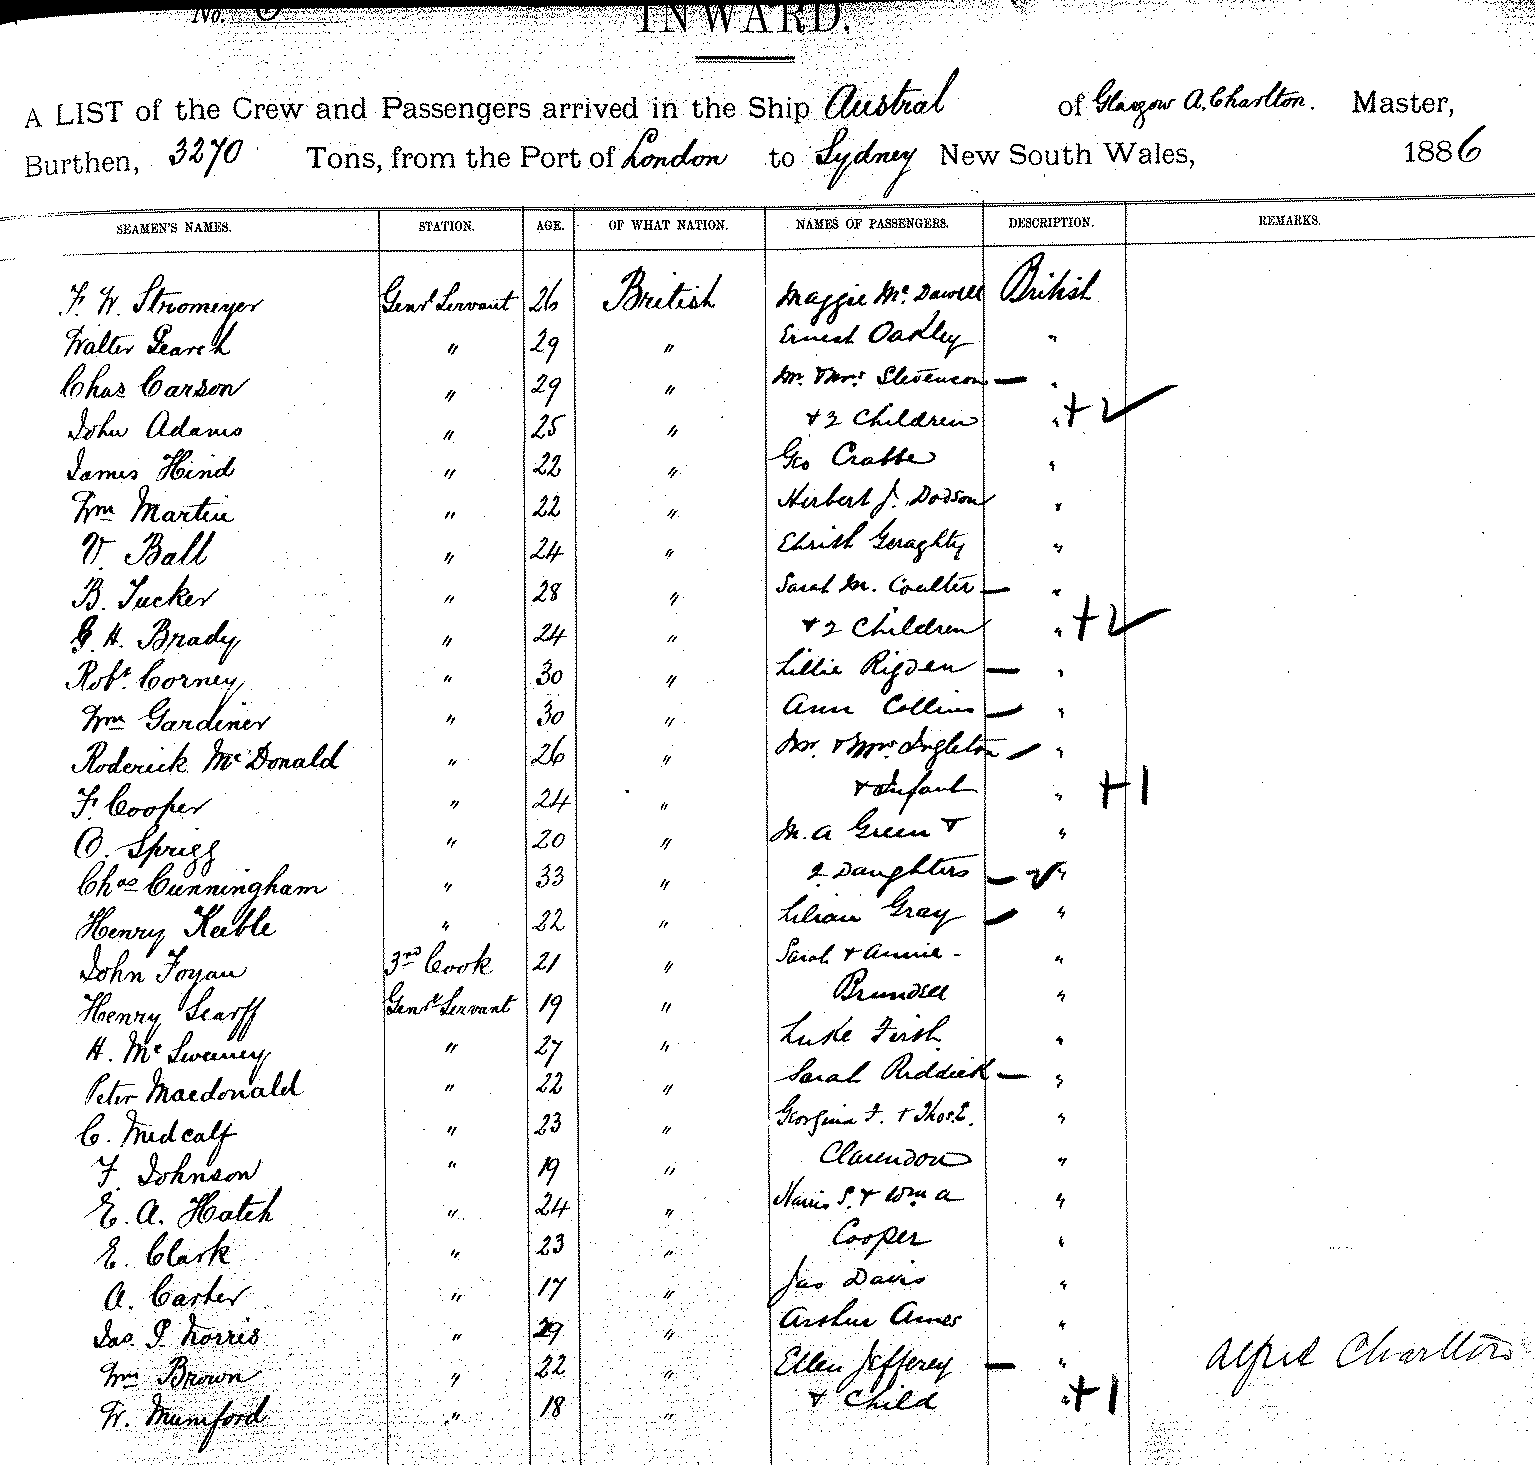 No.
INWARD.
A LIST of the Crew and Passengers arrived in the Ship Austral of Glasgow A. Charlton. Master,
Burthen, 3270 Tons, from the Port of London to Sydney New South Wales, 1886
SEAMEN'S NAMES. STATION. AGE. OF WHAT NATION. NAMES OF PASSENGERS. DESCRIPTION. REMARKS.
F. W. Stromeyer Genl Servant 26 British Maggie Mc Dowell British
Walter Pearch " 29 " Ernest Oakley "
Chas Carson " 29 " Mr. & Mrs. Stevenson — "
John Adams " 25 " + 2 Children " +2 ✓
James Hind " 22 " Geo Crabbe "
Wm Martin " 22 " Herbert J. Dodson "
V. Ball " 24 " Geraghty "
B. Tucker " 28 " Sarah M. Coulter — "
G. H. Brady " 24 " + 2 Children " +2 ✓
Robt. Corney " 30 " Lillie Rigden — "
Wm Gardiner " 30 " Ann Collins — "
Roderick McDonald " 26 " Mr. & Mrs Ingleton — "
F. Cooper " 24 " + Infant " +1
O. Sprigg " 20 " M. A Green + "
Chas Cunningham " 33 " 2 Daughters — ✓ "
Henry Keeble " 22 " Lilian Gray — "
John Foyan 3rd Cook 21 " Sarah + Annie - "
Henry Scarff Genl Servant 19 " Brundell "
H. Mc Sweeney " 27 " Luke Firth "
Peter Macdonald " 22 " Sarah Riddick — "
C. Medcalf " 23 " Georgina F. + Thos. E. "
F. Johnson " 19 " Clarendon "
E. A. Hatch " 24 " Harris S. + Wm A "
E. Clark " 23 " Cooper "
A. Carter " 17 " Jas Davis "
Jas. P. Norris " 29 " Arthur Ames "
Wm Brown " 22 " Ellen Jefferey — " Alfred Charlton
W. Mumford " 18 " + Child " +1